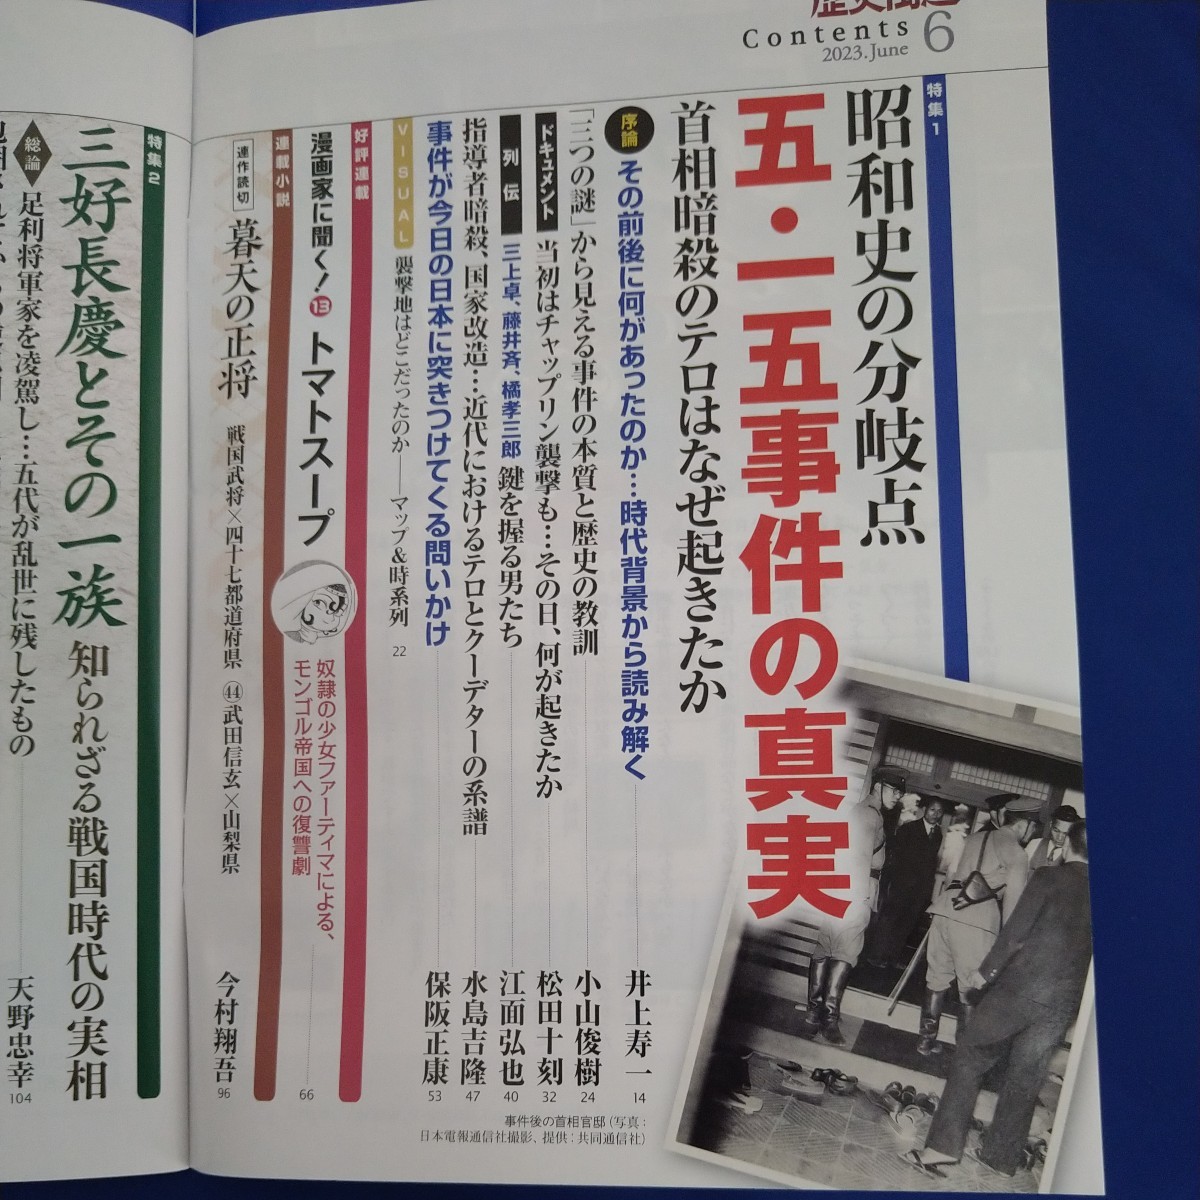 歴史街道
Contents
2023.June 6
特集1
昭和史の分岐点
五・一五事件の真実
首相暗殺のテロはなぜ起きたか
序論 その前後に何があったのか…時代背景から読み解く 井上寿一 14
「三つの謎」から見える事件の本質と歴史の教訓 小山俊樹 24
ドキュメント 当初はチャップリン襲撃も…その日、何が起きたか 松田十刻 32
列伝 三上卓、藤井斉、橘孝三郎 鍵を握る男たち 江面弘也 40
指導者暗殺、国家改造…近代におけるテロとクーデターの系譜 水島吉隆 47
事件が今日の日本に突きつけてくる問いかけ 保阪正康 53
VISUAL 襲撃地はどこだったのか――マップ&時系列 22
事件後の首相官邸(写真:
日本電報通信社撮影、提供:共同通信社)
好評連載
漫画家に聞く!⑬ トマトスープ
奴隷の少女ファーティマによる、
モンゴル帝国への復讐劇 66
連載小説
連作読切 暮天の正将 戦国武将×四十七都道府県 ㊹武田信玄×山梨県 今村翔吾 96
特集2
三好長慶とその一族 知られざる戦国時代の実相
総論 足利将軍家を凌駕し…五代が乱世に残したもの 天野忠幸 104